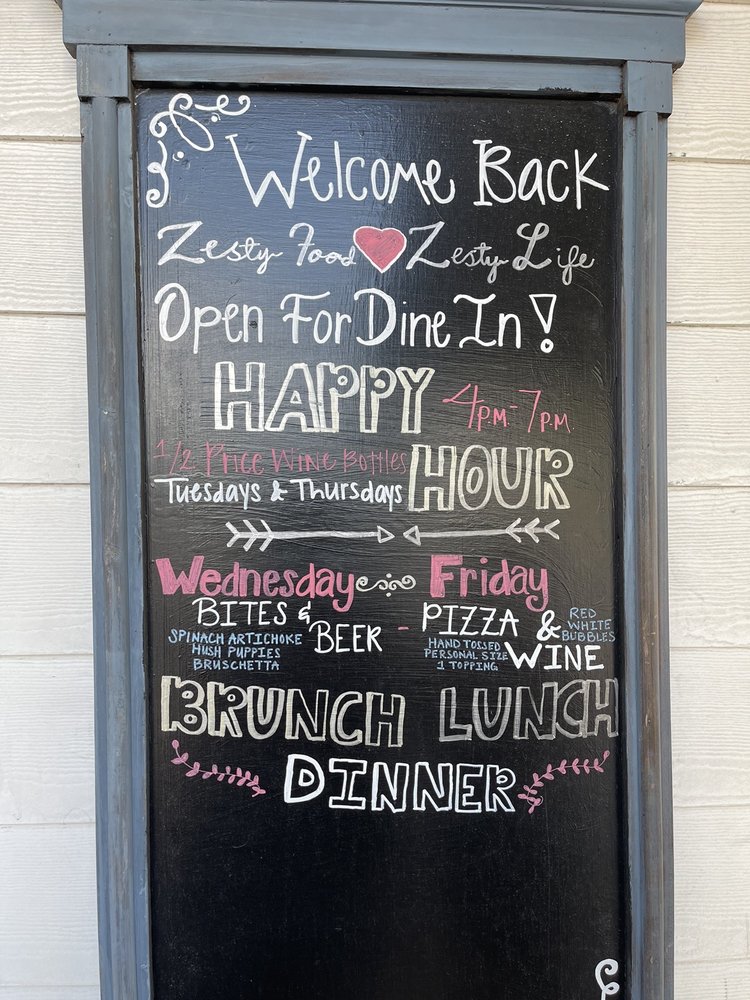 Welcome Back
Zesty Food Zesty Life
Open For Dine In!
HAPPY 4PM-7P.M.
1/2 Price Wine Bottles HOUR
Tuesdays & Thursdays
Wednesday Friday
BITES & BEER - PIZZA & WINE
SPINACH ARTICHOKE
HUSH PUPPIES
BRUSCHETTA
HAND TOSSED
PERSONAL SIZE
1 TOPPING
RED
WHITE
BUBBLES
BRUNCH LUNCH
DINNER